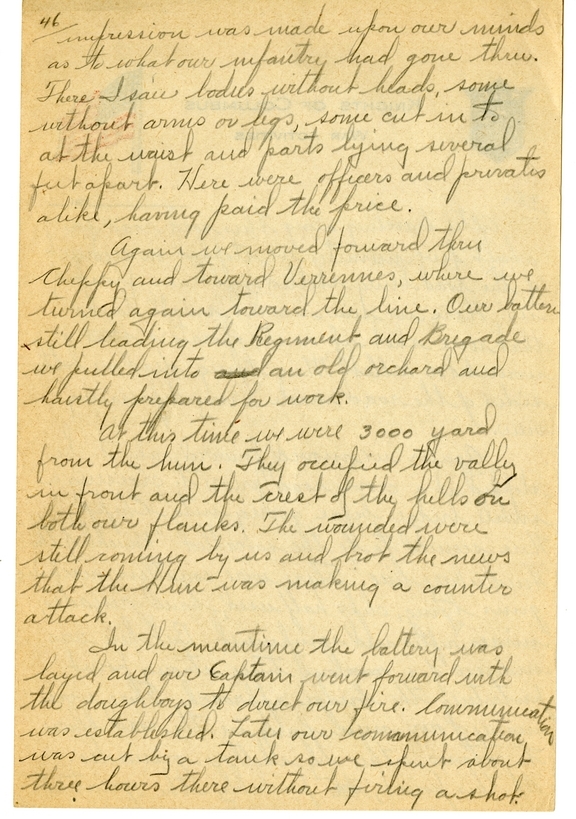 46
impression was made upon our minds
as to what our infantry had gone thru.
There I saw bodies without heads, some
without arms or legs, some cut in to
at the waist and parts lying several
feet apart. Here were officers and privates
alike, having paid the price.
Again we moved forward thru
Cheppy and toward Verrennes, where we
turned again toward the line. Our batter
still leading the Regiment and Brigade
we pulled into and an old orchard and
hastly prepared for work.
At this time we were 3000 yard
from the hun. They occupied the valley
in front and the crest of the hills on
both our flanks. The wounded were
still coming by us and brot the news
that the Hun was making a counter
attack.
In the meantime the battery was
layed and our Captain went forward with
the doughboys to direct our fire. Communication
was established. Later our communication
was cut by a tank so we spent about
three hours there without firing a shot.